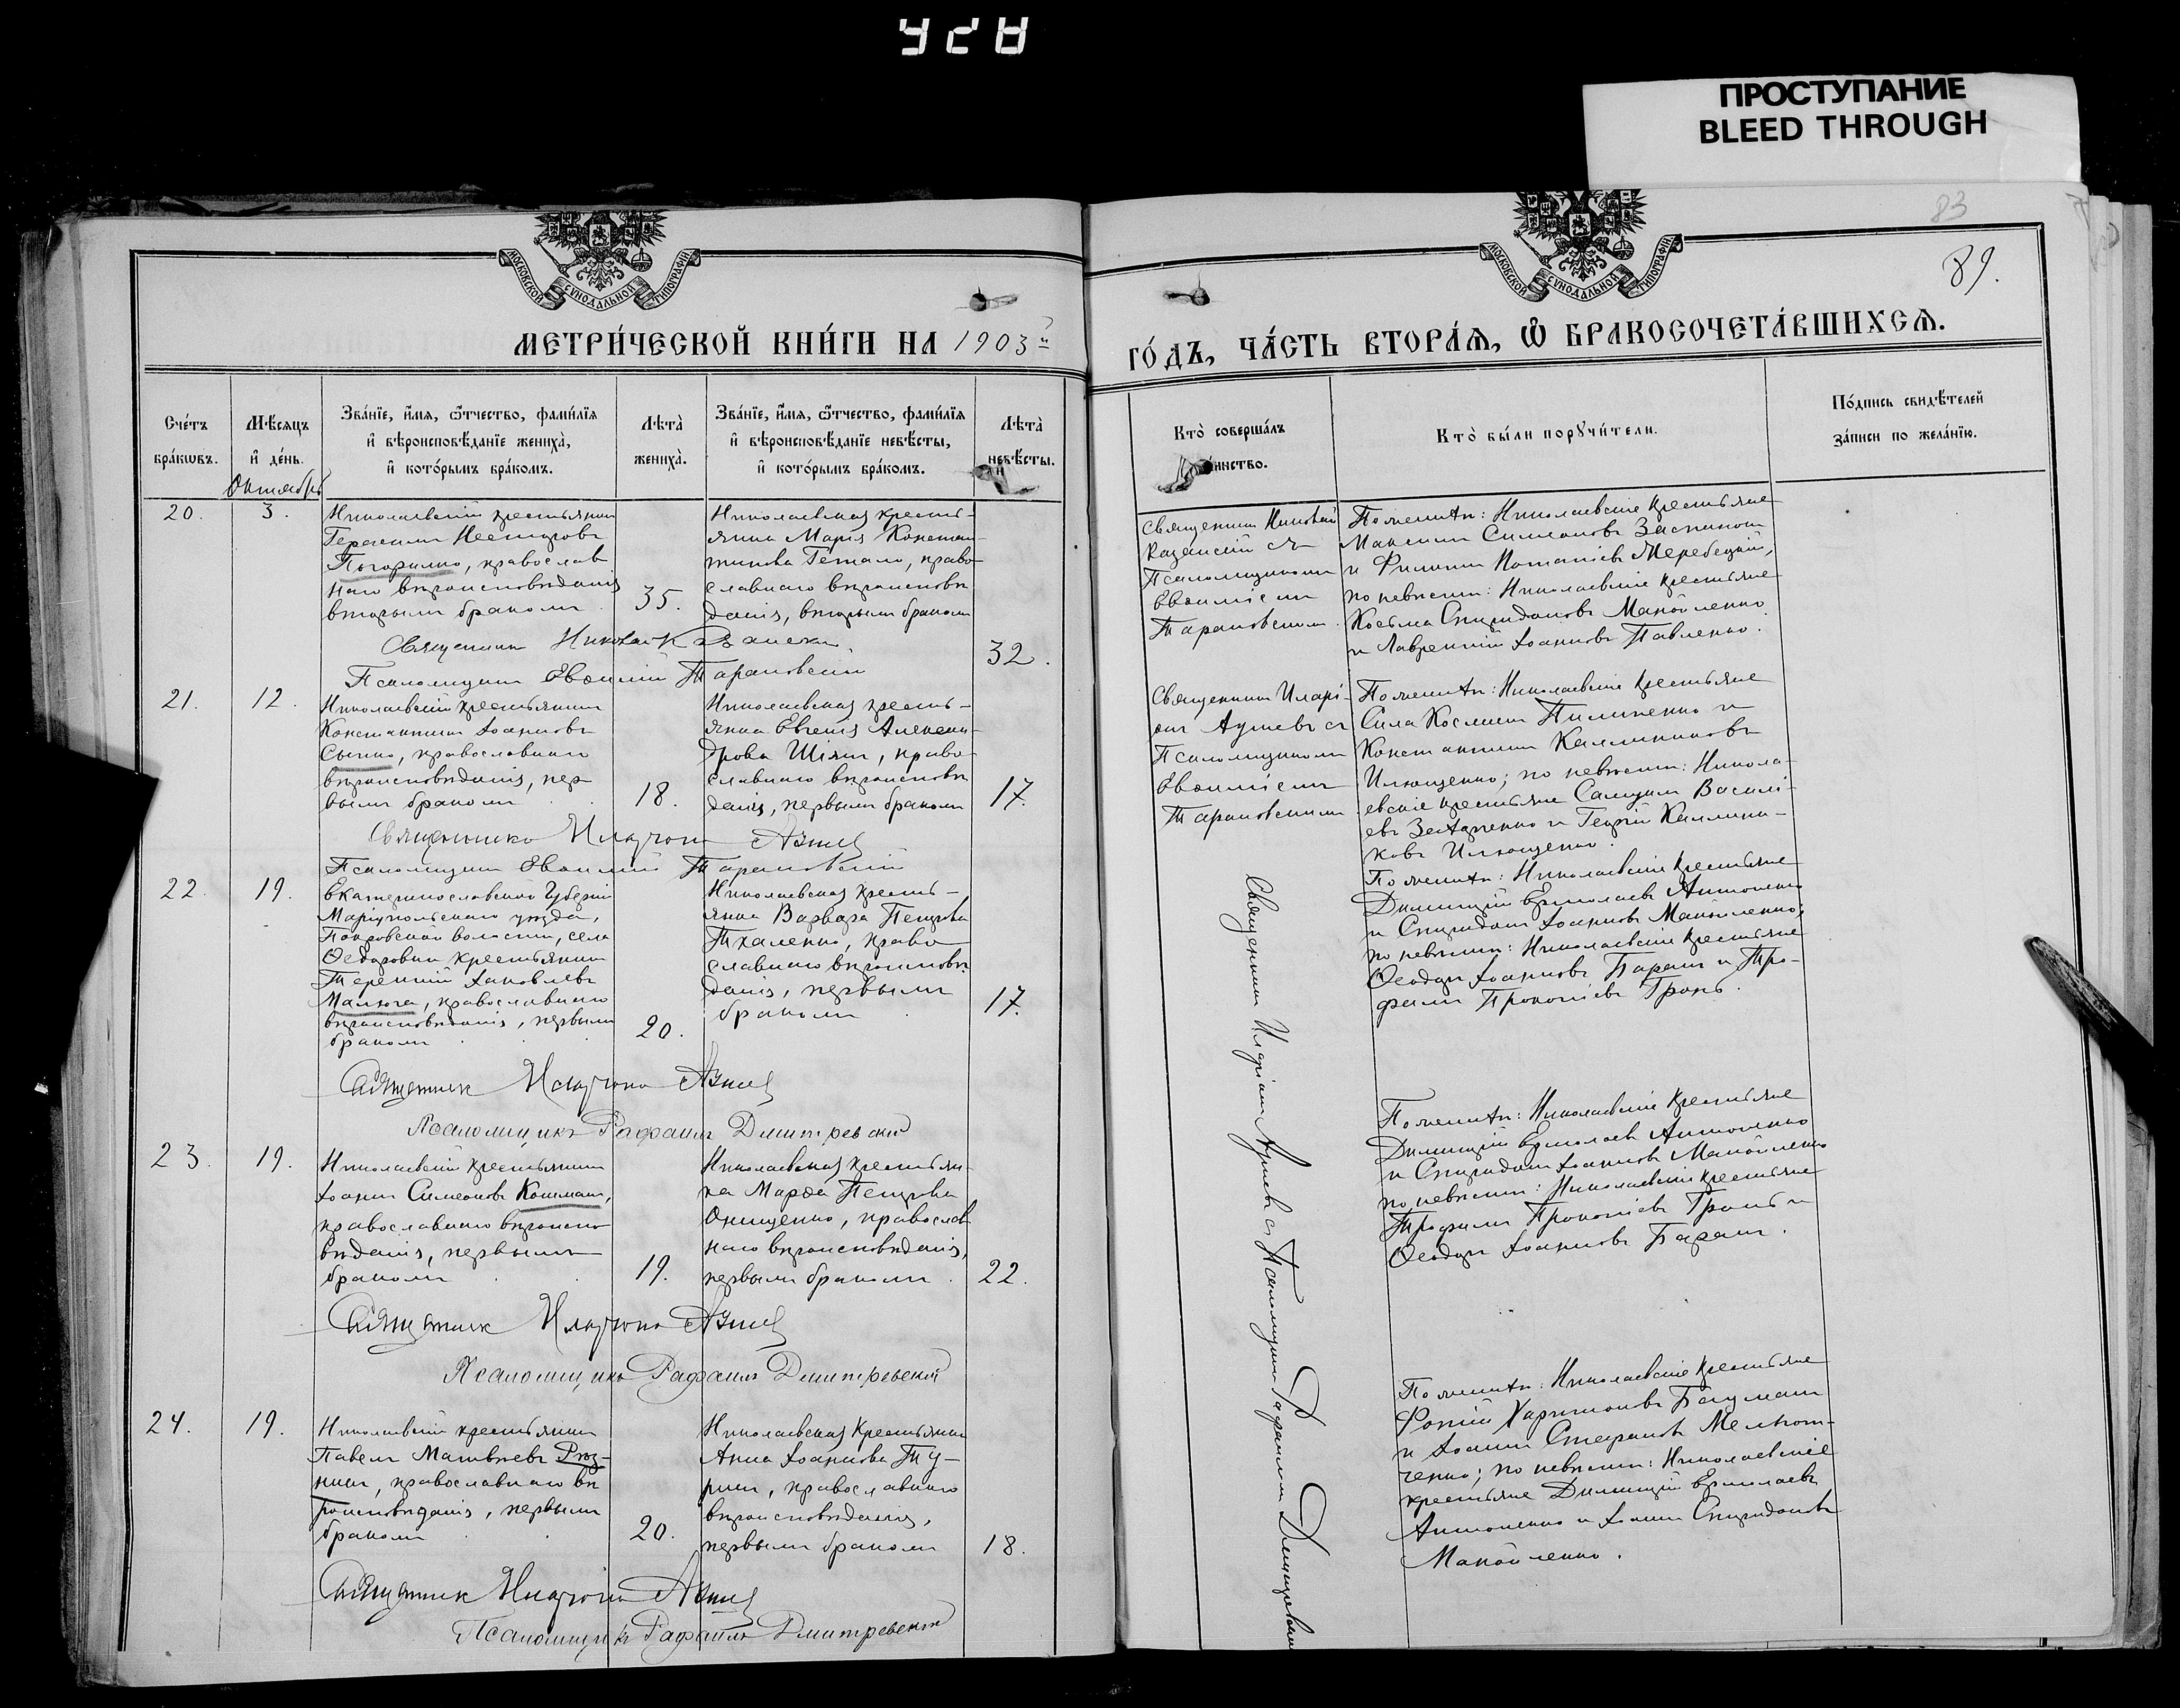 428
ПРОСТУПАНИЕ
BLEED THROUGH
83
89.
МОСКОВСКОЙ СѴНОДАЛЬНОЙ ТИПОГРАФІИ
МОСКОВСКОЙ СѴНОДАЛЬНОЙ ТИПОГРАФІИ
МЕТРИ́ЧЕСКОЙ КНИ́ГИ НА 1903й
ГО́ДЪ, ЧА́СТЬ ВТОРА́Ѧ, Ѡ҆ БРАКОСОЧЕТА́ВШИХСѦ.
Сче́тъ
бра́кѡвъ.
Мѣ́сяцъ
и҆ де́нь.
Октябрь
Зва́нїе, и҆́мя, ѻ҆́тчество, фами́лїя
и҆ вѣроисповѣ́данїе жениха̀,
и҆ кото́рымъ бра́комъ.
Лѣта̀
жениха̀.
Зва́нїе, и҆́мя, ѻ҆́тчество, фами́лїя
и҆ вѣроисповѣ́данїе невѣ́сты,
и҆ кото́рымъ бра́комъ.
Лѣта̀
невѣ́сты.
Кто̀ соверша́лъ
инство.
Кто̀ бы́ли порꙋчи́тели.
По́дпись свидѣ́телей
за́писи по жела́нїю.
20.
3.
Николаевскій крестьянинъ
Герасимъ Несторовъ
Погорилко, православ
наго вѣроисповѣданія
вторымъ бракомъ
35.
Николаевская кресть-
янка Марія Констан-
тинова Гетало, право
славнаго вѣроисповѣ
данія, вторымъ бракомъ
32.
Священникъ Николай
Казанскій съ
Псаломщикомъ
Евѳиміемъ
Тарановскимъ.
По женихѣ: Николаевскіе крестьяне
Максимъ Симеоновъ
и Филиппъ Мережецкій,
по невѣстѣ: Николаевскіе крестьяне
Косьма Спиридоновъ Манойленко
и Лаврентій Іоанновъ Павленко.
Священникъ Николай Казанскій
Псаломщикъ Евѳимій Тарановскій
21.
12.
Николаевскій крестьянинъ
Константинъ Іоанновъ
Сычко, православнаго
вѣроисповѣданія, пер
вымъ бракомъ
18.
Николаевская кресть-
янка Евгенія Алексан-
дрова Шіянъ, право
славнаго вѣроисповѣ
данія, первымъ бракомъ
17.
Священникъ Иларі-
онъ съ
Псаломщикомъ
Евѳиміемъ
Тарановскимъ
По женихѣ: Николаевскіе крестьяне
Сила Косминъ Пилипенко и
Константинъ Каллиниковъ
Ильющенко; по невѣстѣ: Никола-
евскіе крестьяне Самуилъ Василі-
евъ и Георгій Каллини-
ковъ Ильющенко.
Священникъ Иларіонъ
Псаломщикъ Евѳимій Тарановскій
22.
19.
Екатеринославской Губерніи
Маріупольскаго уѣзда,
Покровской волости, села
Ѳедоровки крестьянинъ
Терентій Іаковлевъ
Малюга, православнаго
вѣроисповѣданія, первымъ
бракомъ
20.
Николаевская кресть-
янка Варвара Петрова
Ткаленко, право
славнаго вѣроисповѣ
данія, первымъ
бракомъ
17.
По женихѣ: Николаевскіе крестьяне
Димитрій Ермолаевъ Антоненко
и Спиридонъ Іоанновъ Манойленко;
по невѣстѣ: Николаевскіе крестьяне
Ѳеодоръ Іоанновъ Баранъ и Тро-
фимъ Прокопіевъ Гронь.
Священникъ Иларіонъ
Псаломщикъ Рафаилъ Дмитревскій
Священникъ Иларіонъ съ Псаломщикомъ Рафаиломъ Дмитревскимъ
23.
19.
Николаевскій крестьянинъ
Іоаннъ Симеоновъ Кошманъ,
православнаго вѣроиспо
вѣданія, первымъ
бракомъ
19.
Николаевская крестьян-
ка Марѳа Петрова
Онищенко, православ
наго вѣроисповѣданія,
первымъ бракомъ
22.
По женихѣ: Николаевскіе крестьяне
Димитрій Ермолаевъ Антоненко
и Спиридонъ Іоанновъ Манойленко
по невѣстѣ: Николаевскіе крестьяне
Трофимъ Прокопіевъ Гронь и
Ѳеодоръ Іоанновъ Баранъ.
Священникъ Иларіонъ
Псаломщикъ Рафаилъ Дмитревскій
24.
19.
Николаевскій крестьянинъ
Павелъ Матвѣевъ Рѣз-
никъ, православнаго вѣ
роисповѣданія, первымъ
бракомъ
20.
Николаевская Крестьянка
Анна Іоаннова Ту-
рикъ, православнаго
вѣроисповѣданія,
первымъ бракомъ
18.
По женихѣ: Николаевскіе крестьяне
Фотій Харитоновъ Бауманъ
и Іоаннъ Стефановъ Мельни-
ченко; по невѣстѣ: Николаевскіе
крестьяне Димитрій Ермолаевъ
Антоненко и Іоаннъ Спиридоновъ
Манойленко.
Священникъ Иларіонъ
Псаломщикъ Рафаилъ Дмитревскій